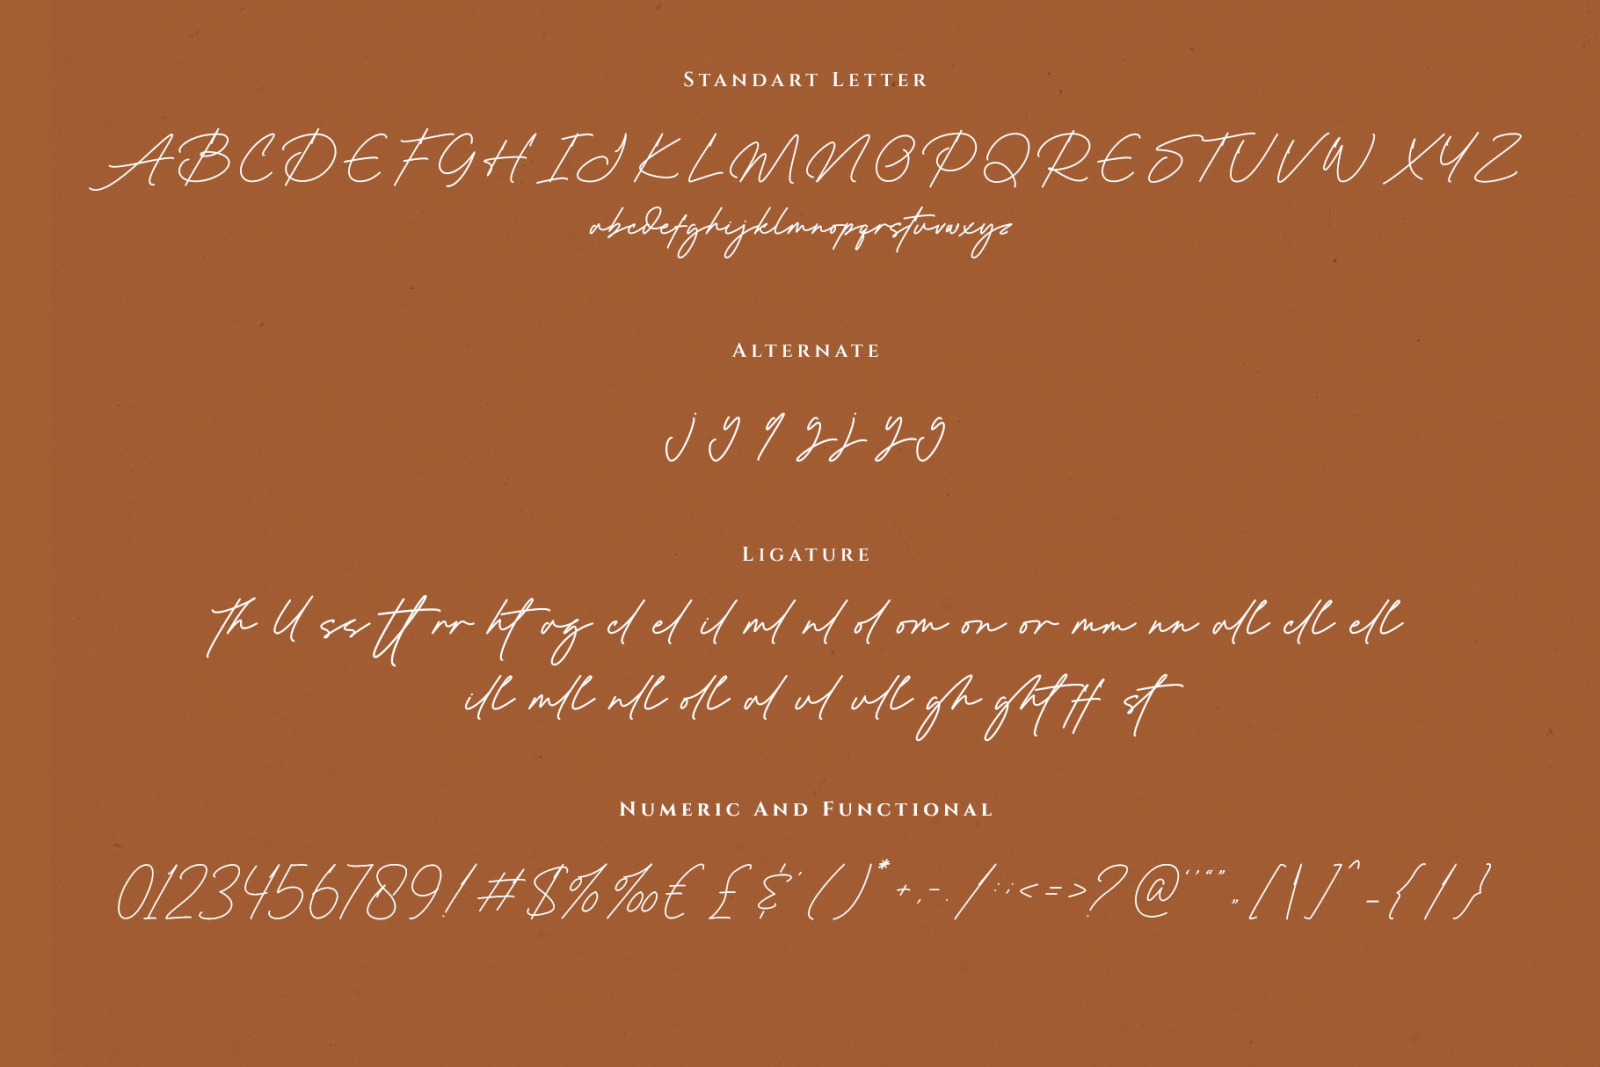 Standart Letter
ABCDEFGHIJKLMNOPQRESTUVW XYZ
abcdefghijklmnopqrstuvwxyz
Alternate
j y q g j y g
Ligature
Th U ss tt rr ht ag cl el il ml nl ol om on or mm nn all cll ell
ill mll nll oll al ul ull gh ght ff st
Numeric And Functional
0123456789! #$%‰€ £ &' ( )* +,-. / :;<=>? @ ‘’“” „ [ \ ] ^ _ { | }